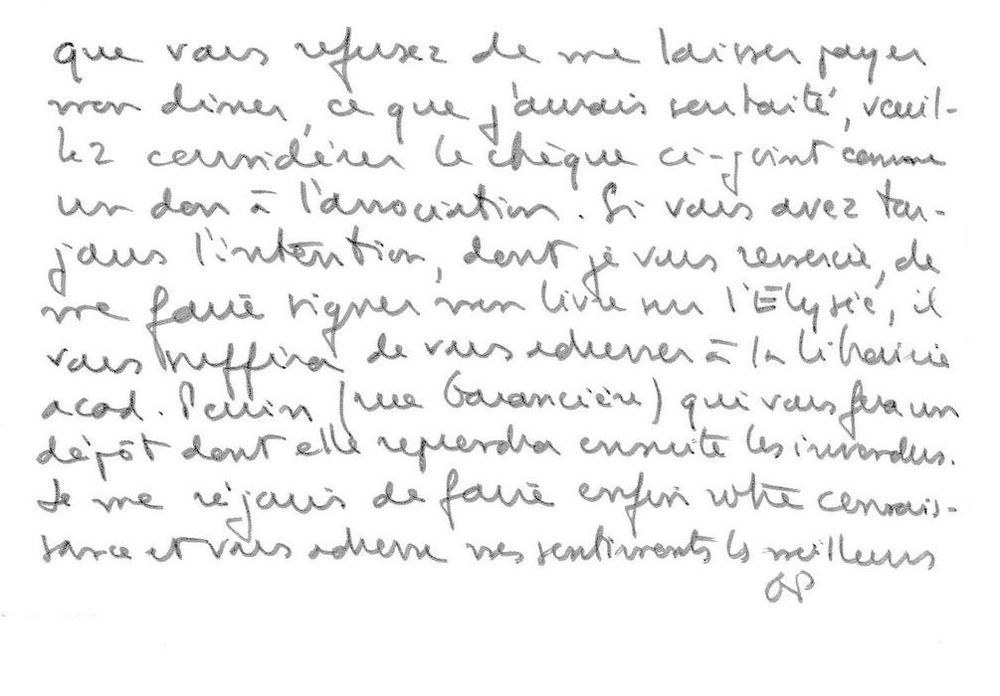 que vous refusez de me laisser payer
mon dîner, ce que j'aurais souhaité, veuil-
lez considérer le chèque ci-joint comme
un don à l'association. Si vous avez tou-
jours l'intention, dont je vous remercie, de
me faire signer mon livre sur l'Elysée, il
vous suffira de vous adresser à la librairie
acad. Perrin (rue Garancière) qui vous fera un
dépôt dont elle reprendra ensuite les invendus.
Je me réjouis de faire enfin votre connais-
sance et vous adresse mes sentiments les meilleurs